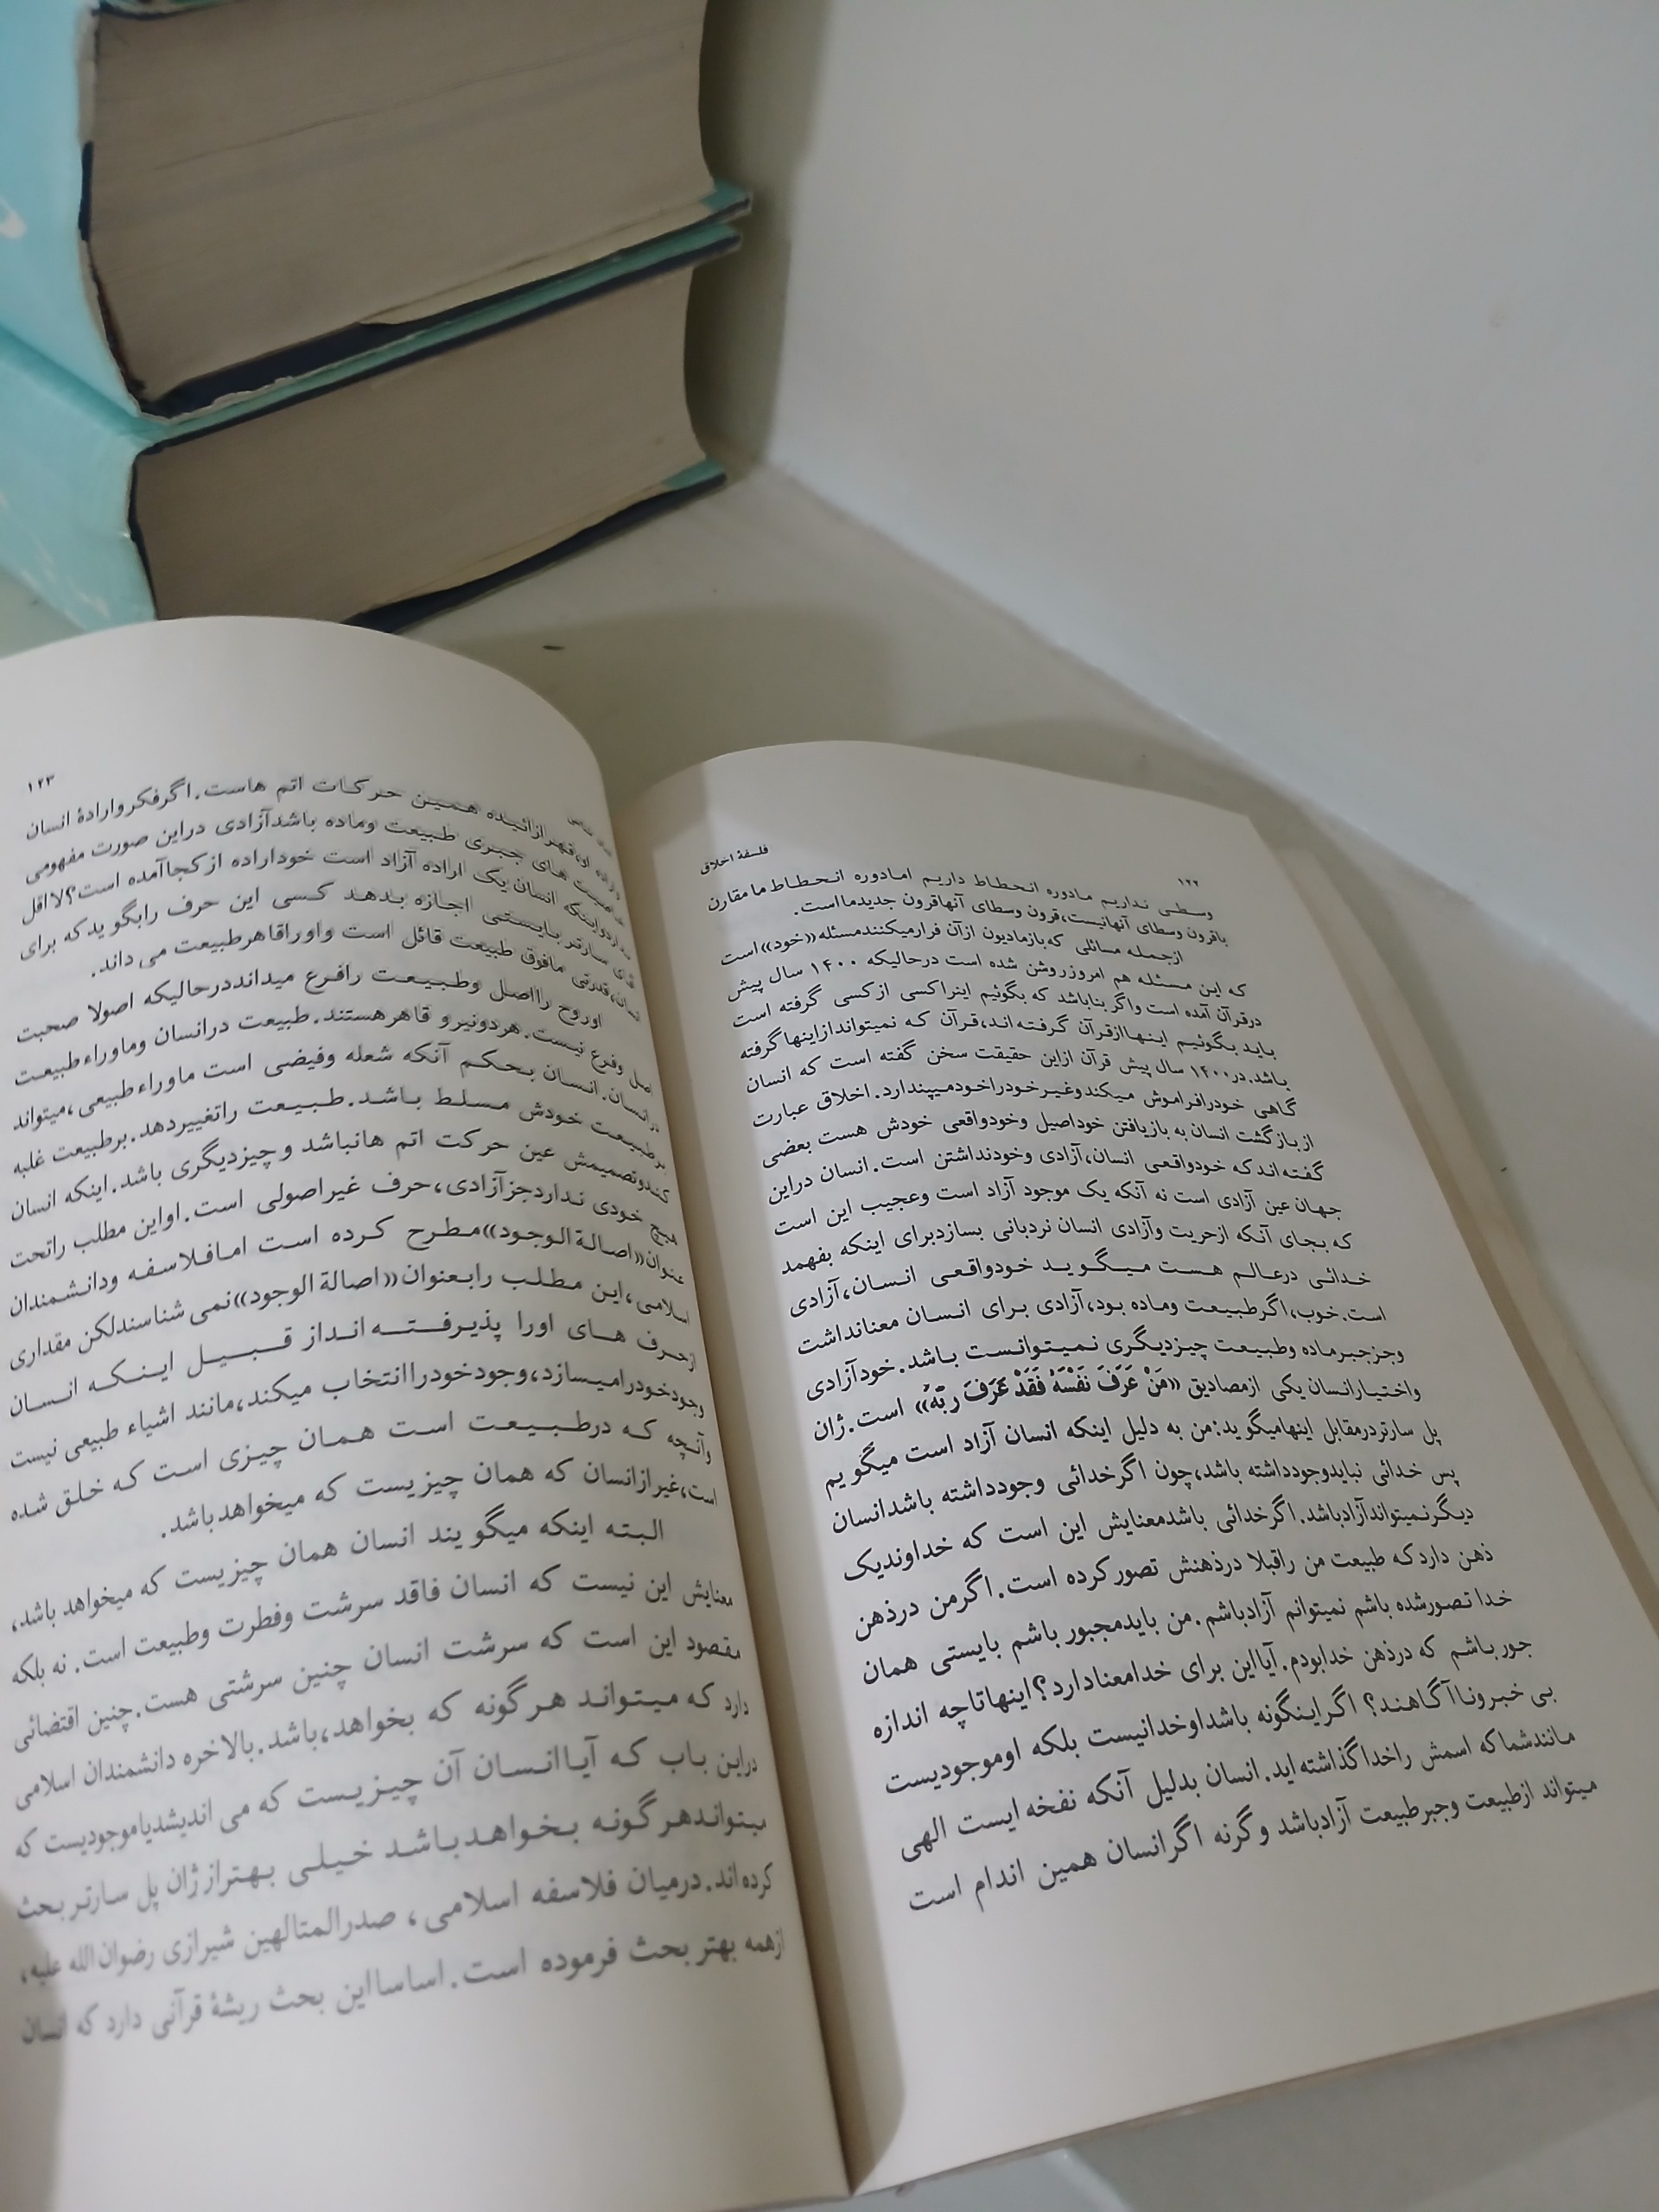 ۱۲۲
فلسفهٔ اخلاق
وسطی نداریم مادوره انحطاط داریم امادوره انحطاط ما مقارن
باقرون وسطای آنهانیست،قرون وسطای آنهاقرون جدیدمااست.
ازجمله مسائلی که بازمادیون ازآن فرارمیکنندمسئله«خود»است
که این مسئله هم امروزروشن شده است درحالیکه ۱۴۰۰ سال پیش
درقرآن آمده است واگر بناباشد که بگوئیم اینراکسی ازکسی گرفته است
باید بگوئیم اینهاازقرآن گرفته اند،قرآن که نمیتواندازاینهاگرفته
باشد.در۱۴۰۰ سال پیش قرآن ازاین حقیقت سخن گفته است که انسان
گاهی خودرافراموش میکندوغیرخودراخودمیپندارد.اخلاق عبارت
ازبازگشت انسان به بازیافتن خوداصیل وخودواقعی خودش هست بعضی
گفته اند که خودواقعی انسان،آزادی وخودنداشتن است.انسان دراین
جهان عین آزادی است نه آنکه یک موجود آزاد است وعجیب این است
که بجای آنکه ازحریت وآزادی انسان نردبانی بسازدبرای اینکه بفهمد
خدائی درعالم هست میگوید خودواقعی انسان،آزادی
است.خوب،اگرطبیعت وماده بود،آزادی برای انسان معنانداشت
وجزجبرماده وطبیعت چیزدیگری نمیتوانست باشد.خودآزادی
واختیارانسان یکی ازمصادیق «مَنْ عَرَفَ نَفْسَهُ فَقَدْ عَرَفَ رَبَّهُ» است.ژان
پل سارتردرمقابل اینهامیگوید:من به دلیل اینکه انسان آزاد است میگویم
پس خدائی نبایدوجودداشته باشد،چون اگرخدائی وجودداشته باشدانسان
دیگرنمیتواندآزادباشد.اگرخدائی باشدمعنایش این است که خداوندیک
ذهن دارد که طبیعت من راقبلا درذهنش تصور کرده است.اگرمن درذهن
خدا تصورشده باشم نمیتوانم آزادباشم.من بایدمجبور باشم بایستی همان
جور باشم که درذهن خدابودم.آیااین برای خدامعنادارد؟اینهاتاچه اندازه
بی خبروناآگاهند؟ اگراینگونه باشداوخدانیست بلکه اوموجودیست
مانندشماکه اسمش راخداگذاشته اید.انسان بدلیل آنکه نفخه ایست الهی
میتواند ازطبیعت وجبرطبیعت آزادباشد وگرنه اگرانسان همین اندام است
۱۲۳
او،قهرازائیده همین حرکات اتم هاست.اگرفکروارادهٔ انسان
های جبری طبیعت وماده باشدآزادی دراین صورت مفهومی
نداردواینکه انسان یک اراده آزاد است خوداراده ازکجاآمده است؟لااقل
سارتر بایستی اجازه بدهد کسی این حرف رابگوید که برای
انسان،قدرتی مافوق طبیعت قائل است واوراقاهرطبیعت می داند.
اوروح رااصل وطبیعت رافرع میدانددرحالیکه اصولا صحبت
اصل وفرع نیست.هردونیرو قاهرهستند.طبیعت درانسان وماوراءطبیعت
درانسان.انسان بحکم آنکه شعله وفیضی است ماوراءطبیعی،میتواند
برطبیعت خودش مسلط باشد.طبیعت راتغییردهد.برطبیعت غلبه
کندوتصمیمش عین حرکت اتم هانباشد وچیزدیگری باشد.اینکه انسان
هیچ خودی نداردجزآزادی،حرف غیراصولی است.اواین مطلب راتحت
عنوان«اصالةالوجود»مطرح کرده است امافلاسفه ودانشمندان
اسلامی،این مطلب رابعنوان«اصالة الوجود»نمی شناسندلکن مقداری
ازحرف های اورا پذیرفته اند از قبیل اینکه انسان
وجودخودرامیسازد،وجودخودراانتخاب میکند،مانند اشیاء طبیعی نیست
وآنچه که درطبیعت است همان چیزی است که خلق شده
است،غیرازانسان که همان چیزیست که میخواهد باشد.
البته اینکه میگویند انسان همان چیزیست که میخواهد باشد،
معنایش این نیست که انسان فاقد سرشت وفطرت وطبیعت است.نه بلکه
مقصود این است که سرشت انسان چنین سرشتی هست.چنین اقتضائی
دارد که میتواند هرگونه که بخواهد،باشد.بالاخره دانشمندان اسلامی
دراین باب که آیاانسان آن چیزیست که می اندیشدیاموجودیست که
میتواندهرگونه بخواهدباشد خیلی بهترازژان پل سارتر بحث
کرده اند.درمیان فلاسفه اسلامی، صدرالمتالهین شیرازی رضوان الله علیه،
ازهمه بهتر بحث فرموده است.اساسااین بحث ریشهٔ قرآنی دارد که انسان